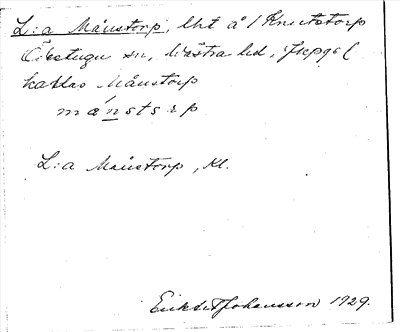 L:a Månstorp, lht å 1 Knutstorp
Öbestugu sn, Västra hd, Jkpgs l
kallas Månstorp
månstsrp
L:a Månstorp, Kl.
Johansson 1929.